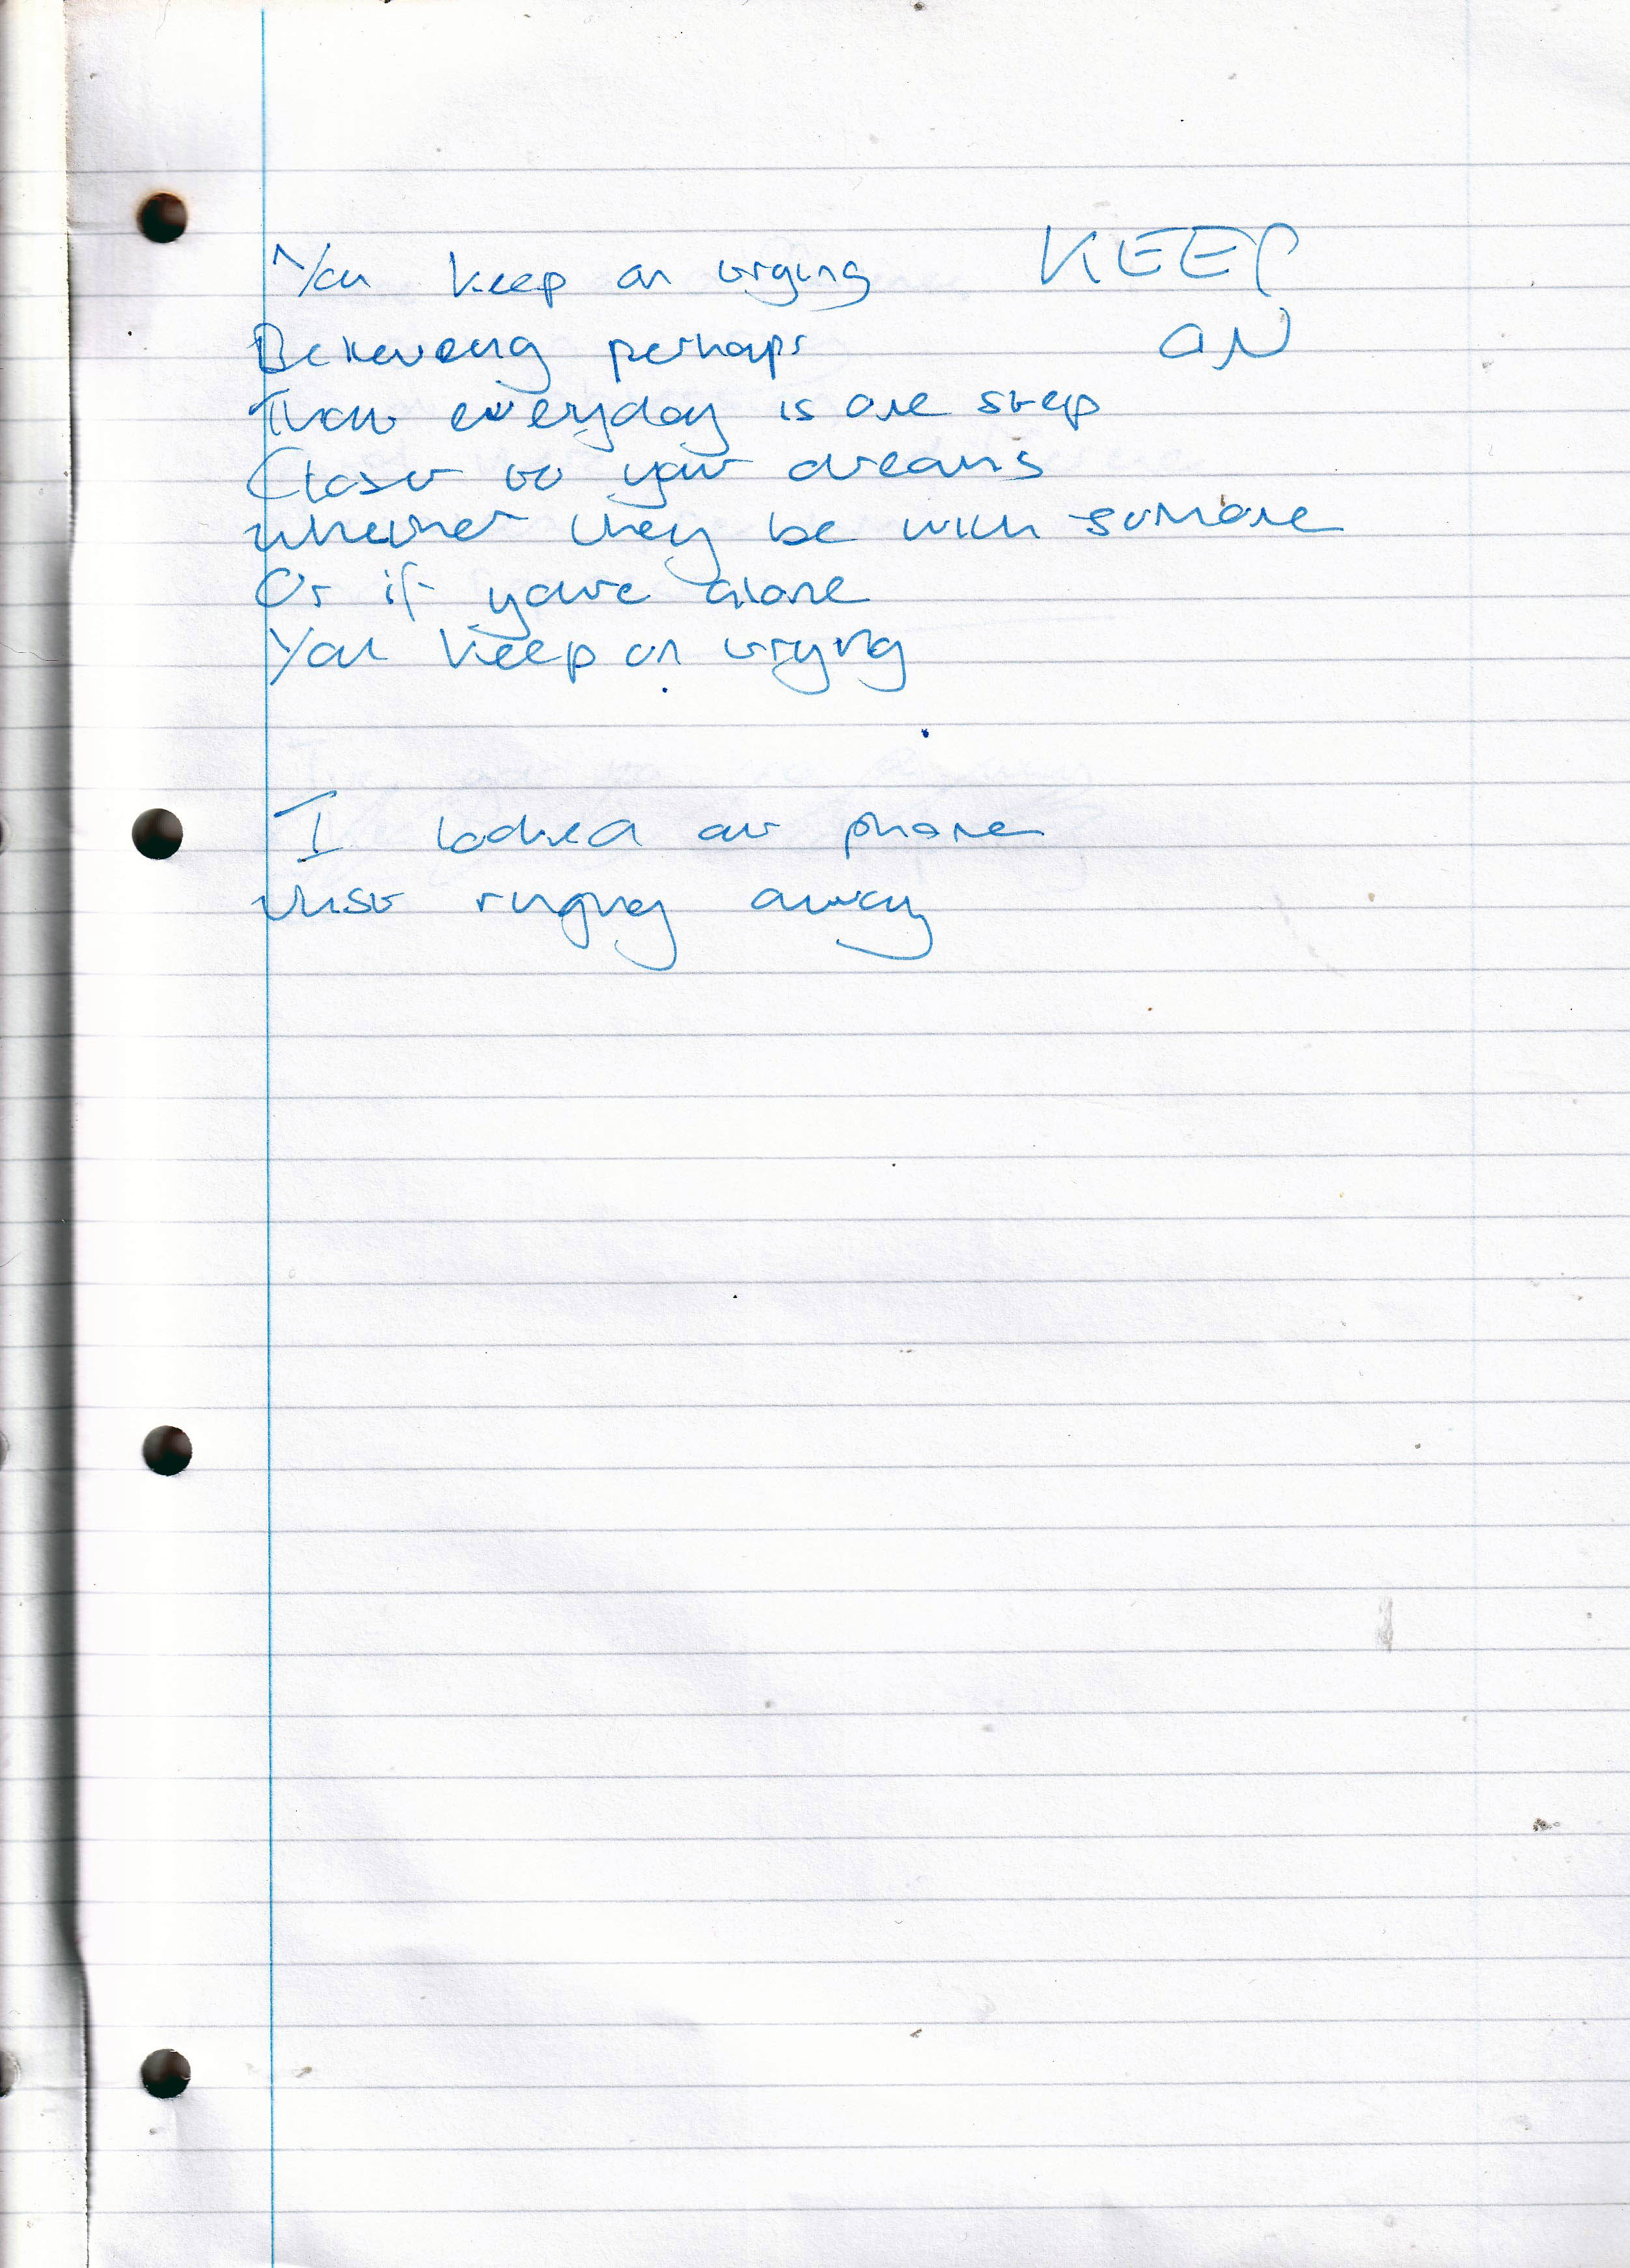 You keep on trying
KEEP
ON
Believeing perhaps
That everyday is one step
Closer to your dreams
Whether they be with somone
Or if youre alone
You keep on trying
I looked at phone
Just ringing away